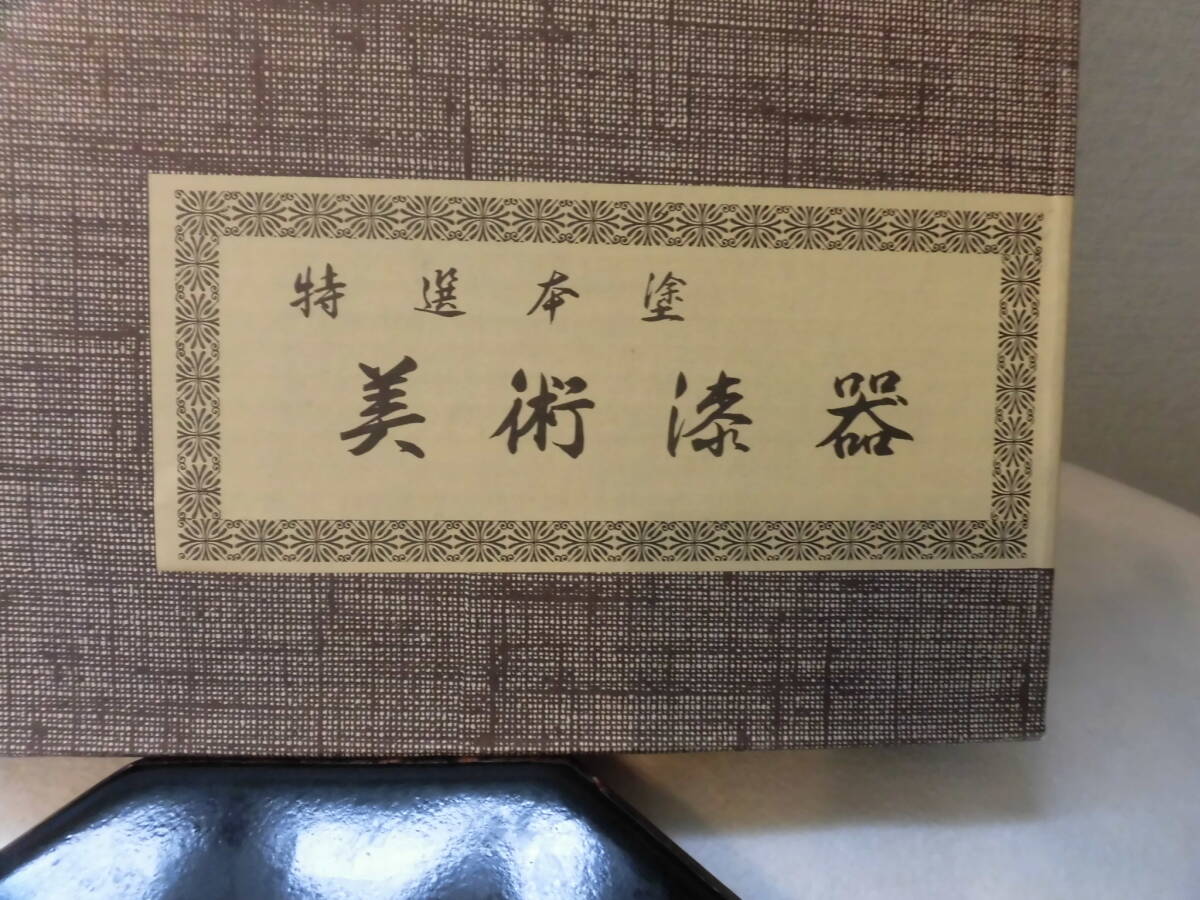 特選本塗
美術漆器